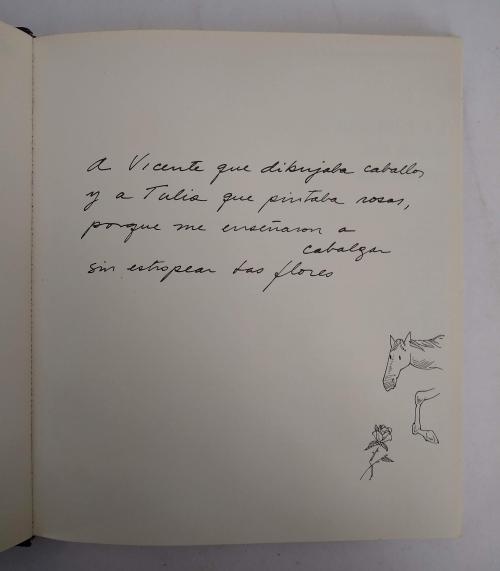 A Vicente que dibujaba caballos
y a Tulia que pintaba rosas,
porque me enseñaron a
cabalgar
sin estropear las flores